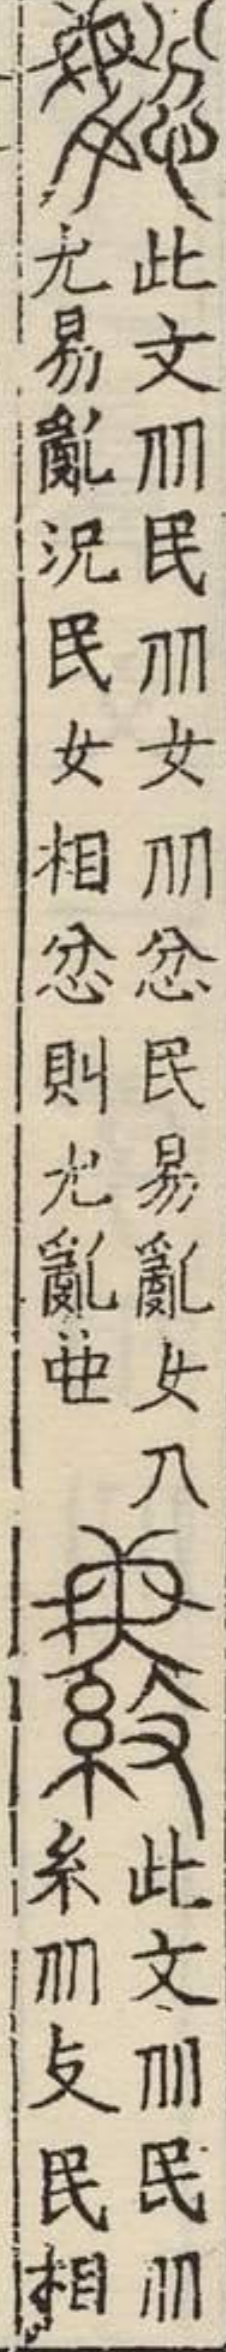 此文从民从女从忿民易亂女人
尤易亂況民女相忿則尤亂
此文从民从
糸从攴民相